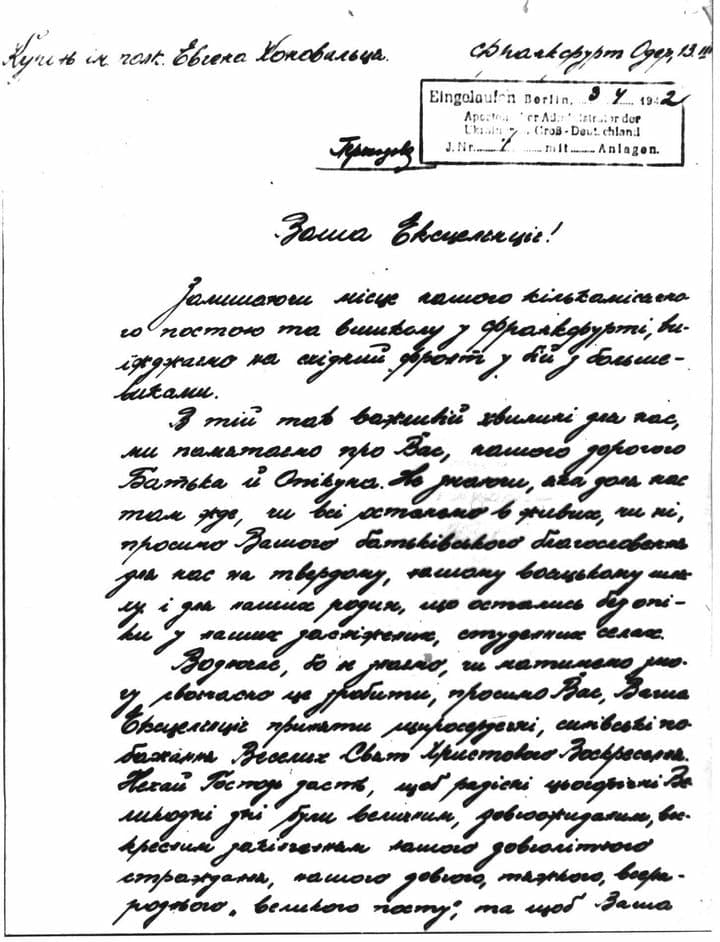 Курінь ім. полк. Евгена Коновальца.
Франкфурт Одер, 13.III
Eingelaufen Berlin, 3 4 1942
der Administrator der
Groß-Deutschland
J. Nr. mit Anlagen.
Ваша Ексцеленціє!
Залишаючи місце нашого кількамісячно-
го постою та вишколу у Франкфурті, ви-
їжджаємо на східний фронт у бій з больше-
виками.
В тій так важливій хвилині для нас,
ми памятаємо про Вас, нашого дорогого
Батька й Опікуна. Не знаючи, яка доля нас
там жде, чи всі останемо в живих, чи ні,
просимо Вашого батьківського благословення
для нас на твердому, нашому вояцькому шля-
ху і для наших родин, що остались без опі-
ки у наших засніжених, студених селах.
Водночас, бо не знаємо, чи матимемо змо-
гу своєчасно це зробити, просимо Вас, Ваша
Ексцеленціє приняти щиросердечні, синівські по-
бажання Веселих Свят Христового Воскресення.
Нехай Господь дасть, щоб радісні цьогорічні Ве-
ликодні дні були величним, довгоожиданим, вос-
кресним закінченням нашого довголітного
страждання, нашого довгого, тяжкого, всена-
роднього „великого посту", та щоб Ваша